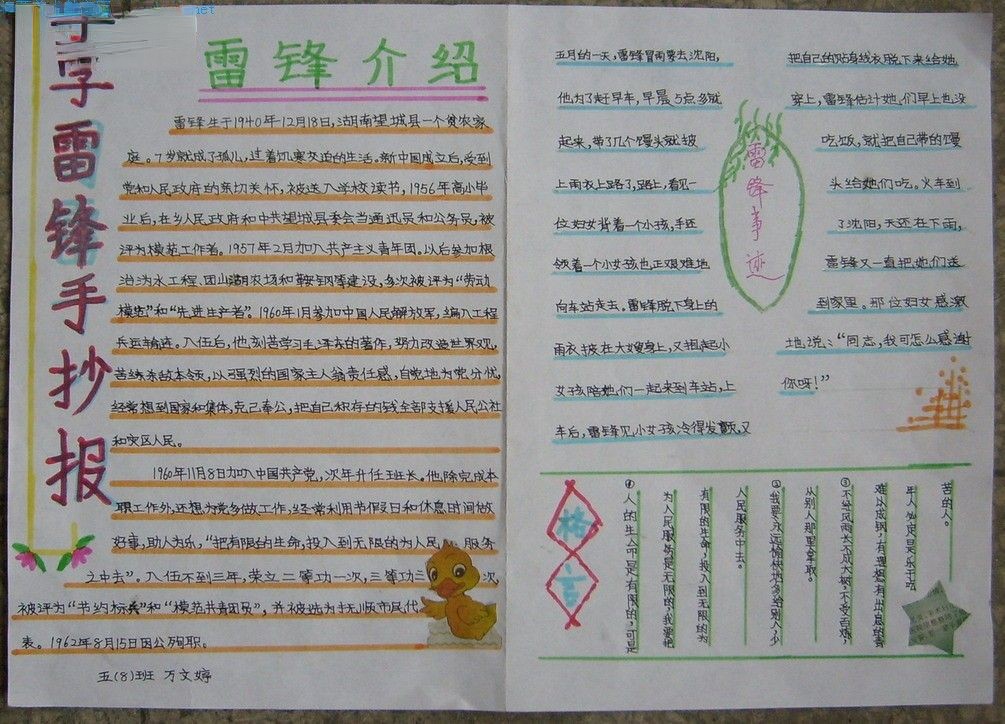 学雷锋手抄报
雷锋介绍
雷锋生于1940年12月18日,湖南望城县一个贫农家
庭。7岁就成了孤儿,过着饥寒交迫的生活。新中国成立后,受到
党和人民政府的亲切关怀,被送入学校读书,1956年高小毕
业后,在乡人民政府和中共望城县委会当通讯员和公务员,被
评为模范工作者。1957年2月加入共产主义青年团。以后参加根
治沩水工程、团山湖农场和鞍钢等建设,多次被评为“劳动
模范”和“先进生产者”。1960年1月参加中国人民解放军,编入工程
兵运输连。入伍后,他刻苦学习毛泽东的著作,努力改造世界观,
苦练杀敌本领,以强烈的国家主人翁责任感,自觉地为党分忧,
经常想到国家和集体,克己奉公,把自己积存的钱全部支援人民公社
和灾区人民。
1960年11月8日加入中国共产党,次年升任班长。他除完成本
职工作外,还想为党多做工作,经常利用节假日和休息时间做
好事,助人为乐,“把有限的生命,投入到无限的为人民 服务
之中去”。入伍不到三年,荣立二等功一次,三等功三 次,
被评为“节约标兵”和“模范共青团员”,并被选为抚顺市民代
表。1962年8月15日因公殉职。
五(8)班 万文婷
雷锋事迹
五月的一天,雷锋冒雨要去沈阳,
他为了赶早车,早晨5点多就
起来,带了几个馒头就披
上雨衣上路了,路上,看见一
位妇女背着一个小孩,手还
领着一个小女孩也正艰难地
向车站走去。雷锋脱下身上的
雨衣披在大嫂身上,又抱起小
女孩陪她们一起来到车站,上
车后,雷锋见小女孩冷得发颤,又
把自己的贴身线衣脱下来给她
穿上,雷锋估计她们早上也没
吃饭,就把自己带的馒
头给她们吃。火车到
了沈阳,天还在下雨,
雷锋又一直把她们送
到家里。那位妇女感激
地说:“同志,我可怎么感谢
你呀!”
格言
①人的生命是有限的,可是
为人民服务是无限的,我要把
有限的生命,投入到无限的为
人民服务中去。
②我要永远愉快地多给别人,少
从别人那里拿取。
③不经风雨,长不成大树,不受百炼,
难以成钢,有理想有出息的青
年人必定是乐于吃
苦的人。